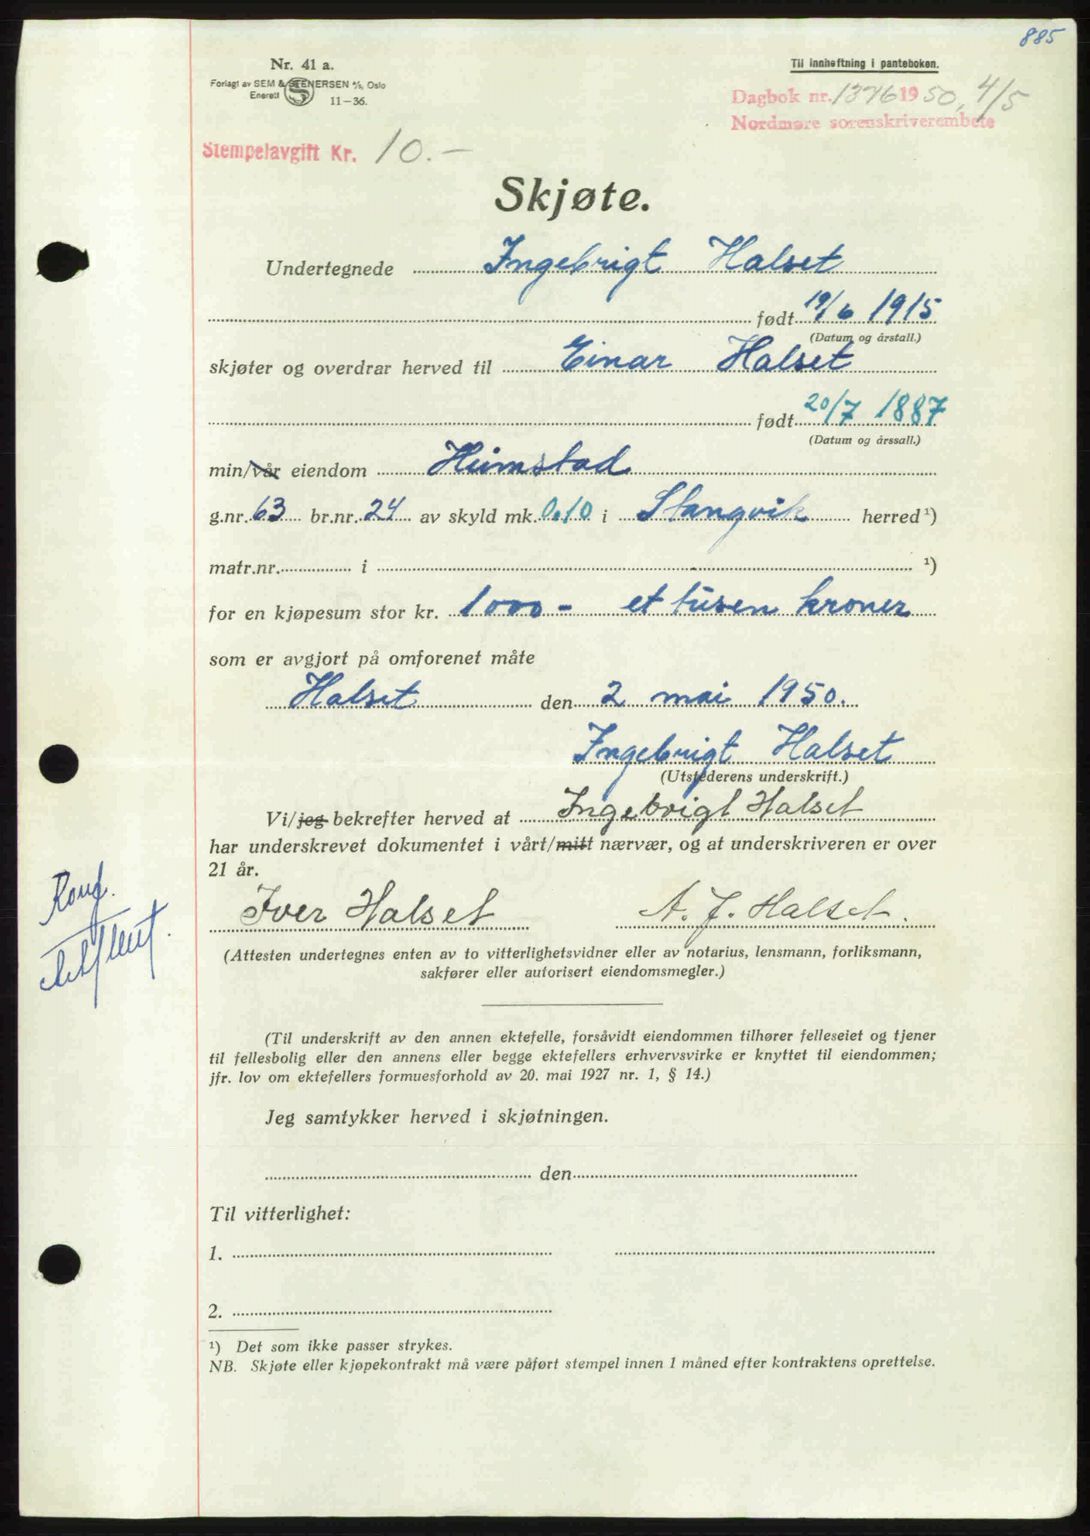 885
Nr. 41 a.
Forlagt av SEM & STENERSEN A/S, Oslo
Enerett 11-36.
Til innheftning i panteboken.
Dagbok nr. 1376 1950, 4/5
Nordmøre sorenskriverembete
Stempelavgift Kr. 10.-
Skjøte.
Undertegnede Ingebrigt Halset
født 19/6 1915
(Datum og årstall.)
skjøter og overdrar herved til Einar Halset
født 20/7 1887
(Datum og årssall.)
min/vår eiendom Heimstad
g.nr. 63 br.nr. 24 av skyld mk. 0.10 i Stangvik herred ¹)
matr.nr. i ¹)
for en kjøpesum stor kr. 1000- et tusen kroner
som er avgjort på omforenet måte
Halset den 2 mai 1950.
Ingebrigt Halset
(Utstederens underskrift.)
Vi/jeg bekrefter herved at Ingebrigt Halset
har underskrevet dokumentet i vårt/mitt nærvær, og at underskriveren er over
21 år.
Iver Halset A. J. Halset.
(Attesten undertegnes enten av to vitterlighetsvidner eller av notarius, lensmann, forliksmann,
sakfører eller autorisert eiendomsmegler.)
(Til underskrift av den annen ektefelle, forsåvidt eiendommen tilhører felleseiet og tjener
til fellesbolig eller den annens eller begge ektefellers erhvervsvirke er knyttet til eiendommen;
jfr. lov om ektefellers formuesforhold av 20. mai 1927 nr. 1, § 14.)
Jeg samtykker herved i skjøtningen.
den
Til vitterlighet:
1.
2.
¹) Det som ikke passer strykes.
NB. Skjøte eller kjøpekontrakt må være påført stempel innen 1 måned efter kontraktens oprettelse.